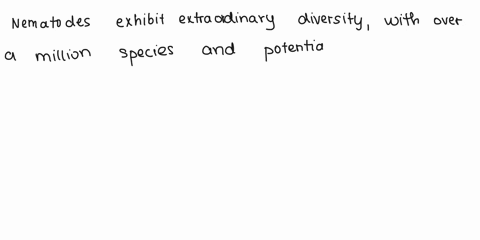 Nematodes exhibit extraordinary diversity, with over
a million species and potentia